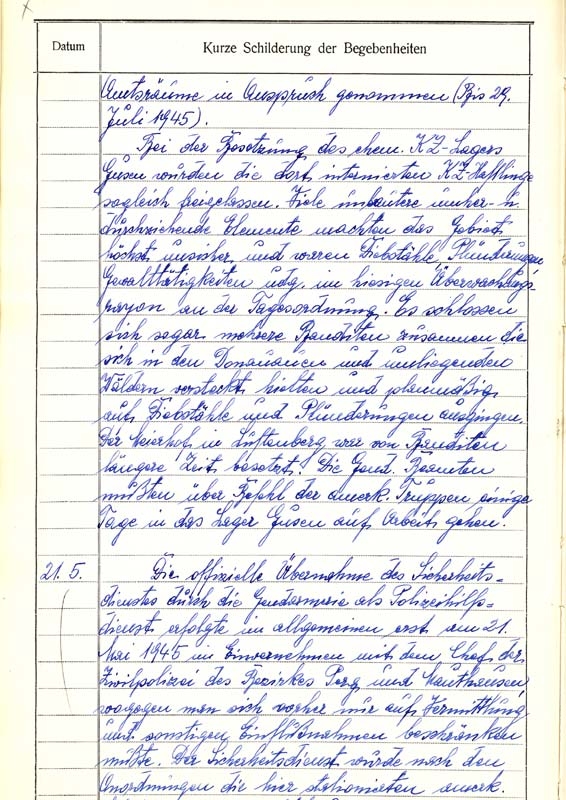 Datum
Kurze Schilderung der Begebenheiten
Amtsräume in Anspruch genommen (Bis 29.
Juli 1945).
Bei der Besetzung des ehem. KZ-Lagers
Gusen wurden die dort internierten KZ Häftlinge
sogleich freigelassen. Viele unlautere umher- u.
durchziehende Elemente machten das Gebiet
höchst unsicher und waren Diebstähle, Plünderungen
Gewalttätigkeiten udg. im hiesigen Überwachungs
rayon an der Tagesordnung. Es schlossen
sich sogar mehrere Banditen zusammen die
sich in den Donauauen und umliegenden
Wäldern versteckt hielten und planmäßig
auf Diebstähle und Plünderungen ausgingen.
Der Meierhof in Luftenberg war von Banditen
längere Zeit besetzt. Die Gend. Beamten
mußten über Befehl der amerk. Truppen einige
Tage in das Lager Gusen auf Arbeit gehen.
21. 5. Die offizielle Übernahme des Sicherheits-
dienstes durch die Gendarmerie als Polizeihilfs-
dienst erfolgte im allgemeinen erst am 21.
Mai 1945 im Einvernehmen mit dem Chef der
Zivilpolizei des Bezirkes Perg und Mauthausen,
wogegen man sich vorher nur auf Vermittlung
und sonstigen Einflußnahmen beschränken
mußte. Der Sicherheitsdienst wurde nach den
Anordnungen die hier stationierten amerk.